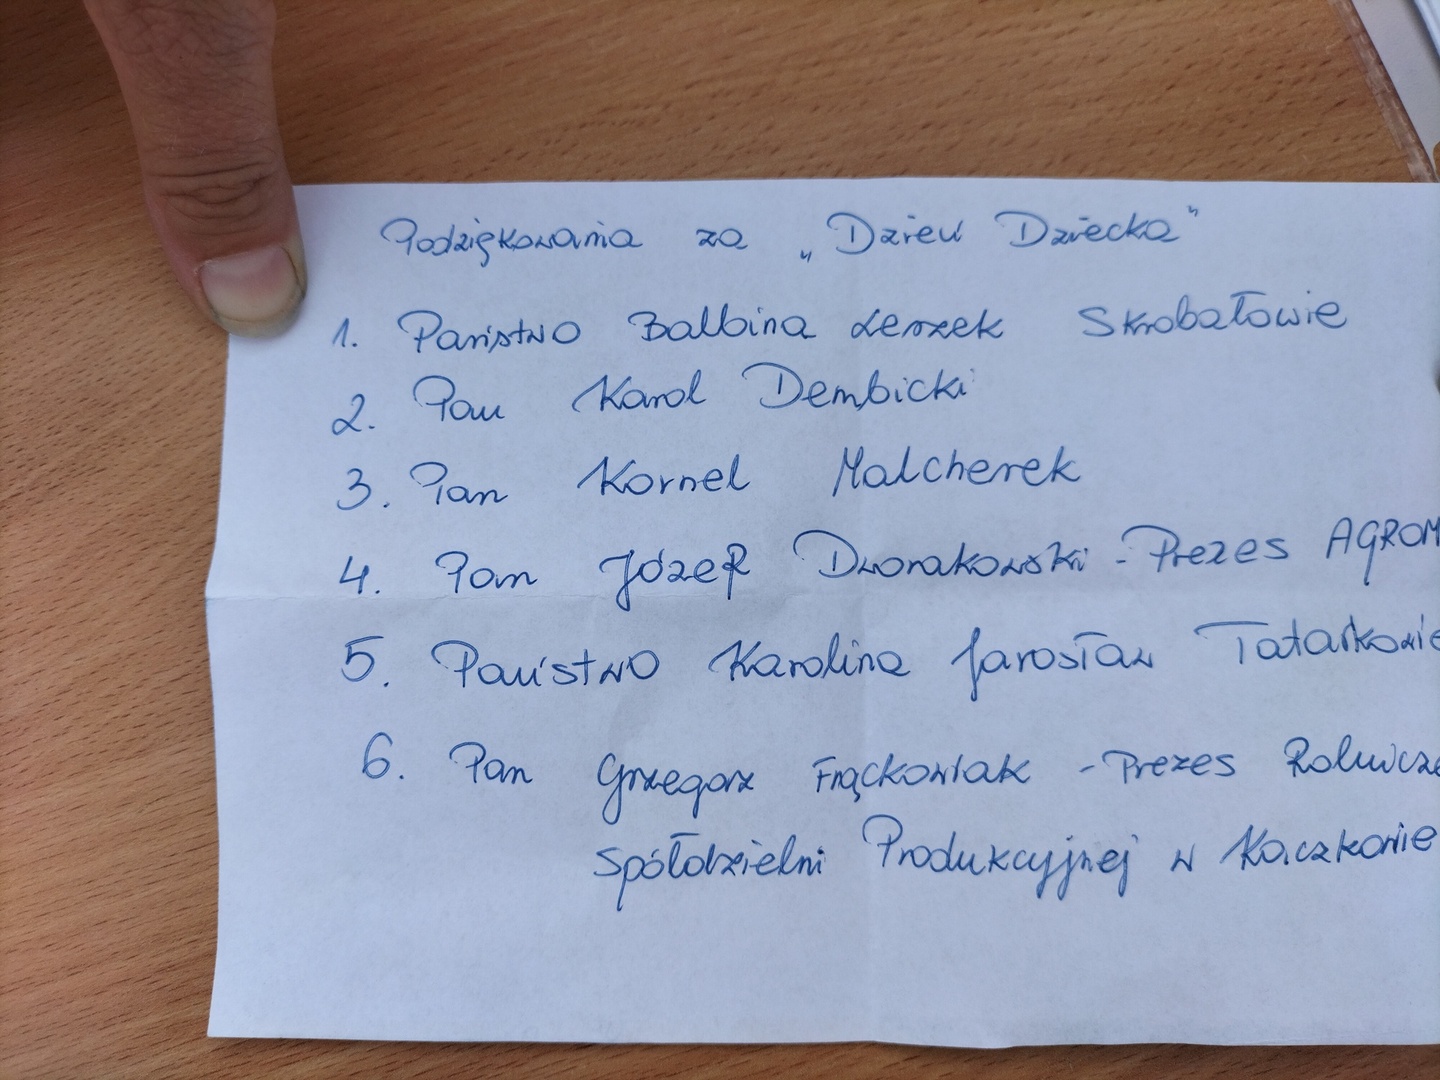 Podziękowania za „Dzień Dziecka"
1. Państwo Balbina Leszek Skrobałowie
2. Pan Karol Dembicki
3. Pan Kornel Malcherek
4. Pan Józef Dworakowski - Prezes AGROM
5. Państwo Karolina Jarosław Tatarkowie
6. Pan Grzegorz Frąckowiak - Prezes Rolnicze
Spółdzielni Produkcyjnej w Kaczkowie